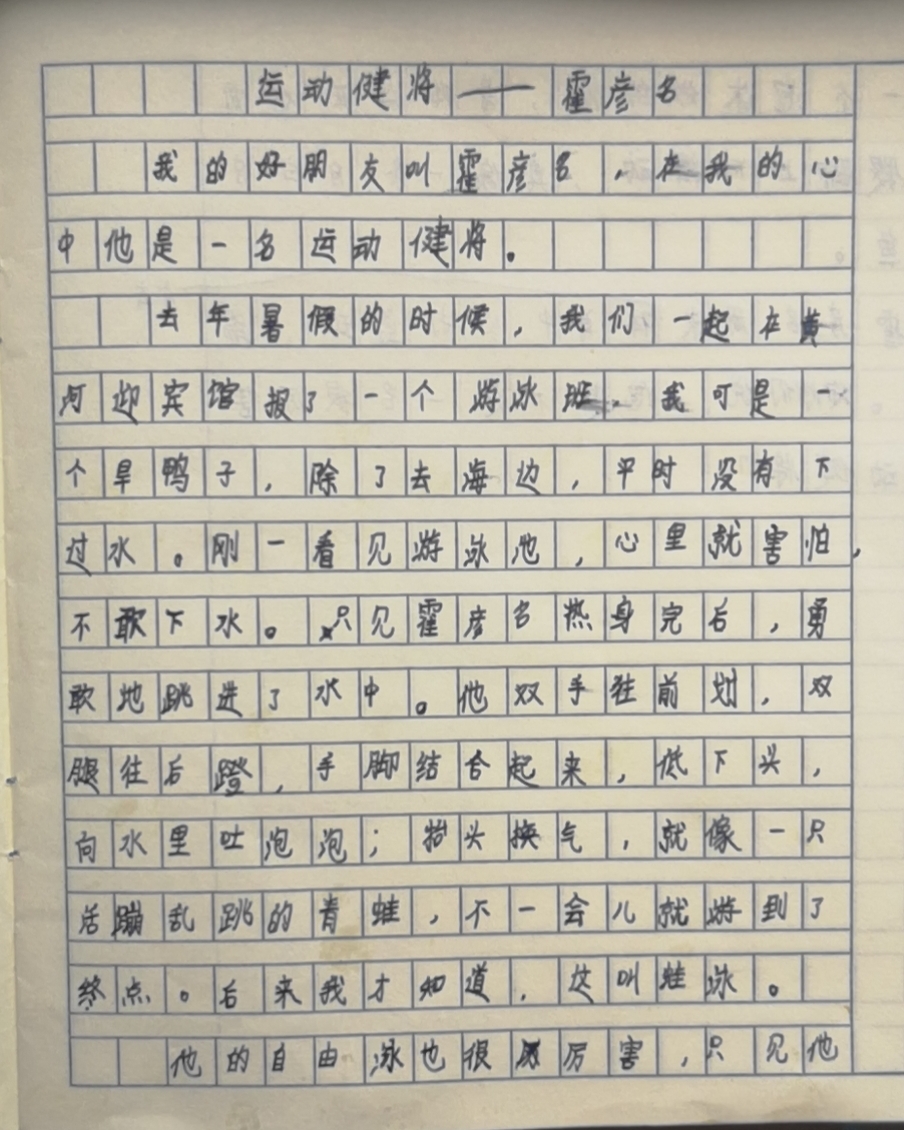 运动健将——霍彦名
我的好朋友叫霍彦名，在我的心
中他是一名运动健将。
去年暑假的时候，我们一起在黄
河迎宾馆报了一个游泳班。我可是一
个旱鸭子，除了去海边，平时没有下
过水。刚一看见游泳池，心里就害怕，
不敢下水。只见霍彦名热身完后，勇
敢地跳进了水中。他双手往前划，双
腿往后蹬，手脚结合起来，低下头，
向水里吐泡泡；抬头换气，就像一只
活蹦乱跳的青蛙，不一会儿就游到了
终点。后来我才知道，这叫蛙泳。
他的自由泳也很厉害，只见他